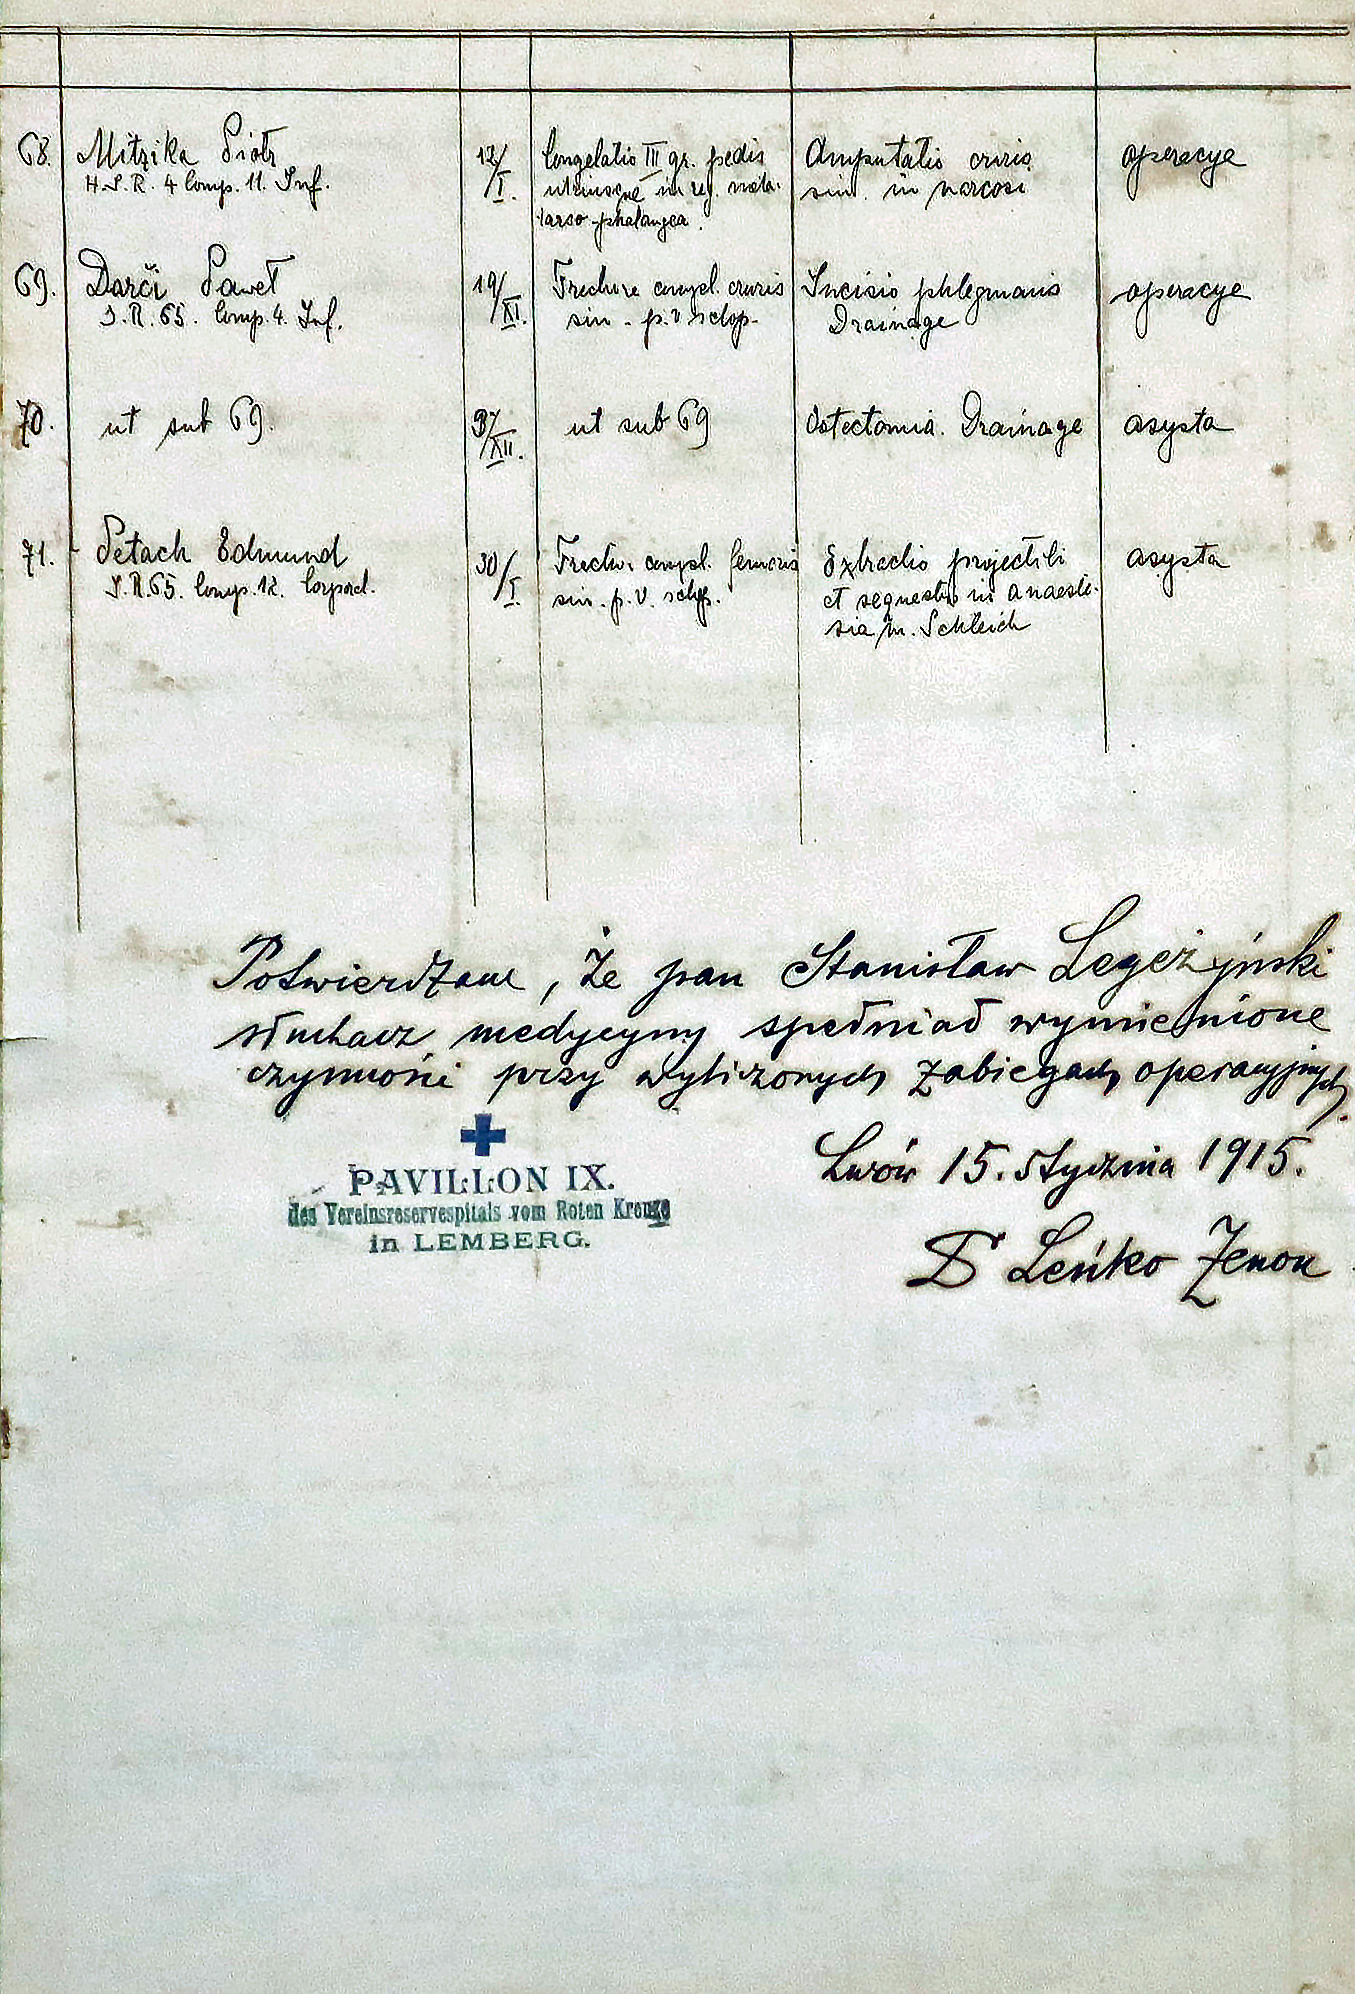 68. Mitzika Piotr 12/I. Congelatio III gr. pedis Amputatio cruris operacye
H.I.R. 4 Comp. 11. Inf. utriusque in reg. meta- sin. in narcosi
tarso-phalangea.
69. Darči Paweł 19/XI. Fracture compl. cruris Incisio phlegmonis operacye
I.R. 65. Comp. 4. Inf. sin. p. v. sclop. Drainage
70. ut sub 69. /XII. ut sub 69 Ostectomia. Drainage asysta
71. Petach Edmund 30/I. Fractu. compl. femoris Extractio projectili asysta
I.R. 65. Comp. 12. Corporal. sin. p. v. sclop. et sequestri in anaesthe-
sia m. Schleich
Potwierdzam, że pan Stanisław Legeżyński
słuchacz medycyny spełniał wymienione
czynności przy wyliczonych zabiegach operacyjnych.
Lwów 15. stycznia 1915.
PAVILLON IX.
des Vereinsreservespitals vom Roten Kreuze
in LEMBERG.
Dr Leńko Zenon